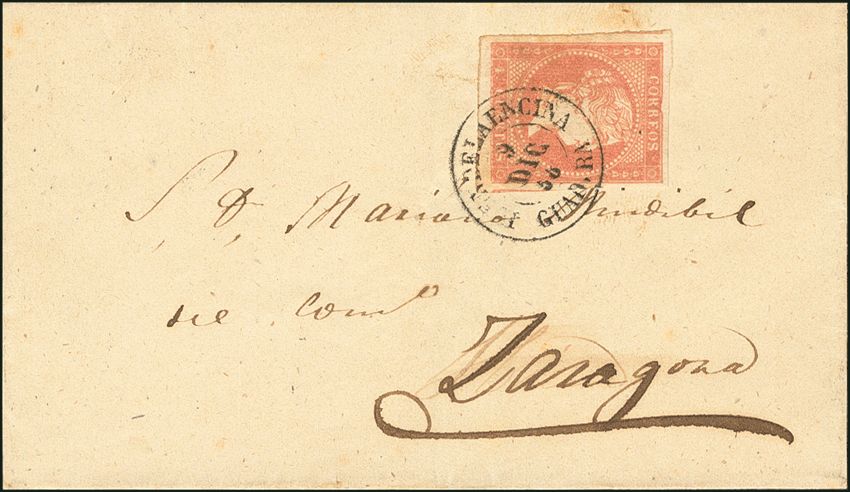 CORREOS
DELAENCINA
9
DIC
56
GUAD.RA
S. D. Mariano
del com.o
Zaragoza